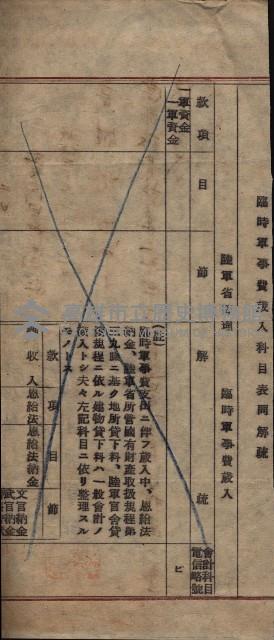 臨時軍事費歳入科目表同解疏
陸軍省所管 臨時軍事費歳入
款 項 目 節 解 疏 會計科目電信略號
一軍資金
一軍資金
ヒ
(註)
臨時軍事費支出ニ伴フ歳入中、恩給法
納金、陸軍省所管國有財産取扱規程第
三九條ニ基ク地所貸下料、陸軍官舍貸
下規程ニ依ル建物貸下料ハ一般會計ノ
歳入トシ夫々左記科目ニ依リ整理スル
モノトス
款 項 目 節
雜收入 恩給法納金 恩給法納金 文官納金
武官納金
高雄市立歷史博物館